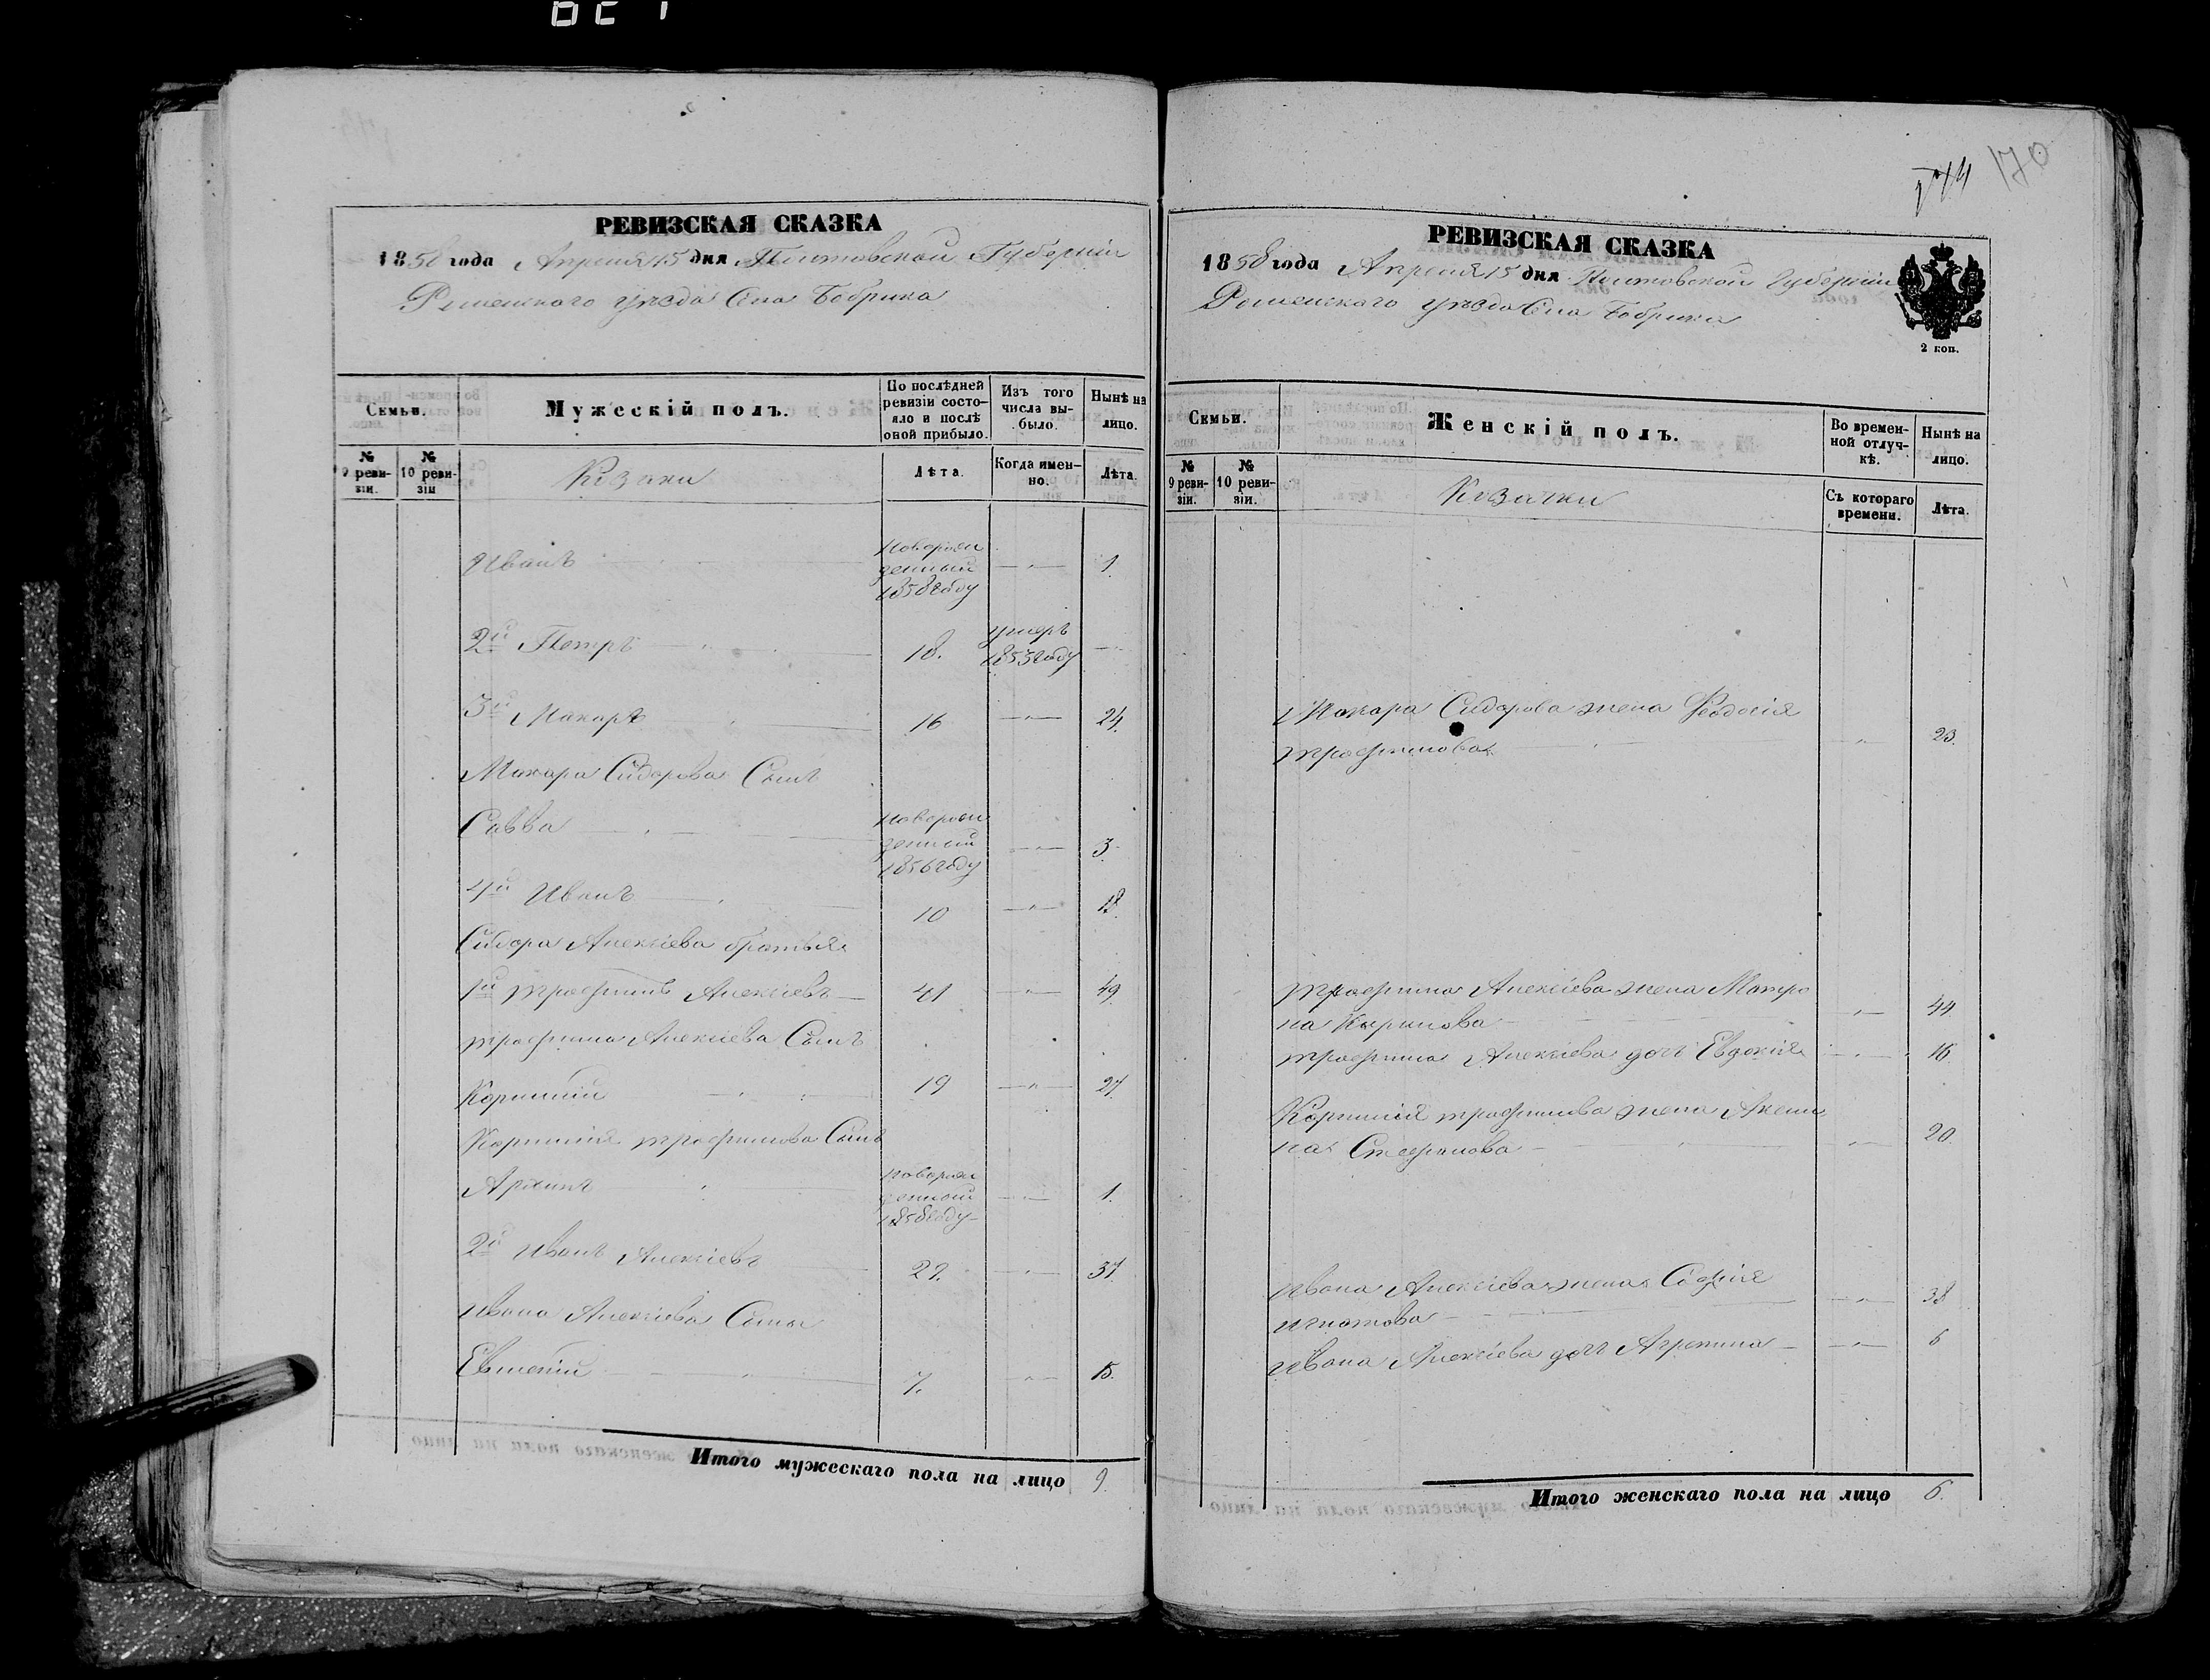 170
РЕВИЗСКАЯ СКАЗКА
1858 года Апреля 15 дня Полтовской Губерніи
Роменского уезда Села Бобрика
Семьи.
Мужескій полъ.
По послѣдней ревизіи состо-
яло и послѣ
оной прибыло.
Изъ того
числа вы-
было.
Нынѣ на
лицо.
№
9 реви-
зіи.
№
10 реви-
зіи
Козаки
Лѣта.
Когда имен-
но.
Лѣта.
Иванъ
новорож
денный
1858 году
1.
2й Петръ
18.
умеръ
1853 году
3й Макаръ
16
24.
Макара Сидорова Сынъ
Савва
новорож
денный
1856 году
3.
4й Иванъ
10
18.
Сидора Алексіева братья
1й Трофимъ Алексіевъ
41
49.
Трофима Алексіева Сынъ
Корнилій
19
27.
Корнилія Трофимова Сынъ
Архипъ
новорож
денный
1858 году
1.
2й Иванъ Алексіевъ
29.
37.
Ивана Алексіева Сыны
Евтихій
7.
15.
Итого мужескаго пола на лицо 9.
РЕВИЗСКАЯ СКАЗКА
1858 года Апреля 15 дня Полтовской Губерніи
Роменского уезда Села Бобрика
2 коп.
Семьи.
Женскій полъ.
Во времен-
ной отлуч-
кѣ.
Нынѣ на
лицо.
№
9 реви-
зіи.
№
10 реви-
зіи.
Козачки
Съ котораго
времени.
Лѣта.
Макара Сидорова жена Феодосія
Трофимова
23.
Трофима Алексіева жена Матро
на Кирилова
44.
Трофима Алексіева дочь Евдокія
16
Корнилія Трофимова жена Аксени
на Стефанова
20.
Ивана Алексіева жена Софія
Игнатова
38
Ивана Алексіева дочь Агрепина
6
Итого женскаго пола на лицо 6.